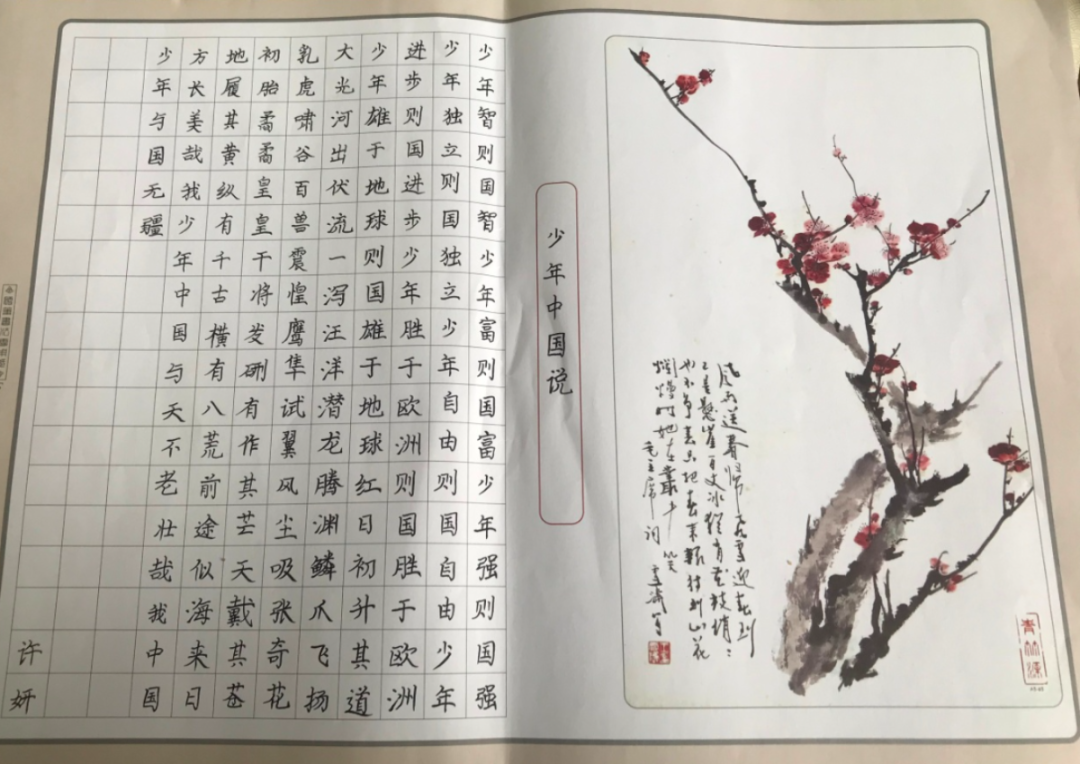 风雨送春归飞雪迎春到
已是悬崖百丈冰犹有花枝俏
也不争春只把春来报待到山花
烂熳时她在叢中笑
毛主席词
少年中国说
少年智则国智少年富则国富少年强则国强
少年独立则国独立少年自由则国自由少年
进步则国进步少年胜于欧洲则国胜于欧洲
少年雄于地球则国雄于地球红日初升其道
大光河出伏流一泻汪洋潜龙腾渊鳞爪飞扬
乳虎啸谷百兽震惶鹰隼试翼风尘吸张奇花
初胎矞矞皇皇干将发硎有作其芒天戴其苍
地履其黄纵有千古横有八荒前途似海来日
方长美哉我少年中国与天不老壮哉我中国
少年与国无疆
许妍